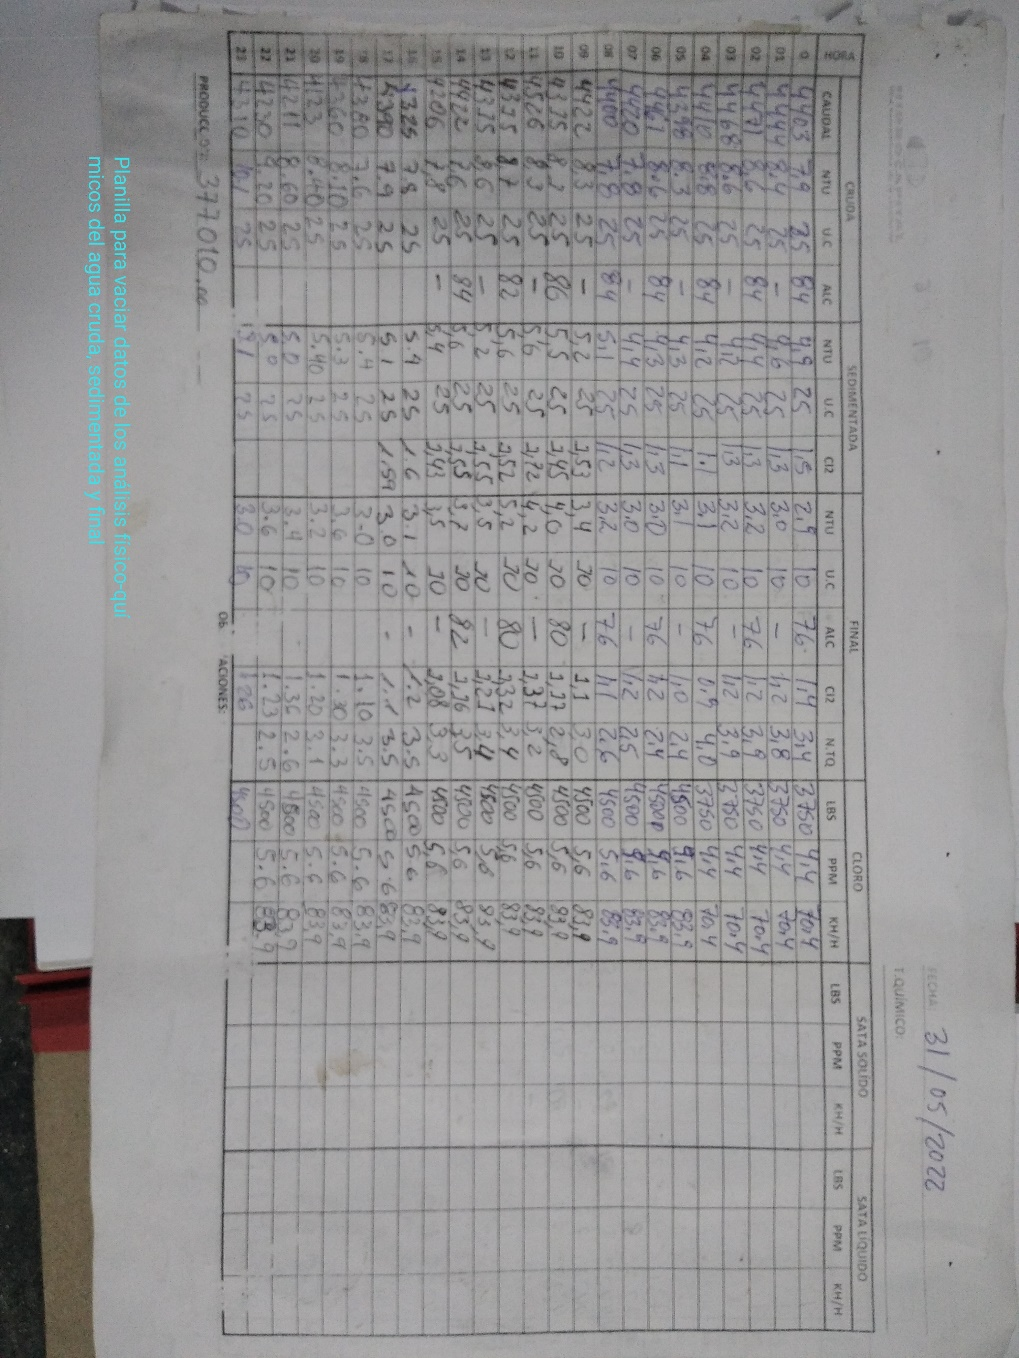 FECHA: 31/05/2022
T.QUÍMICO:
CRUDA SEDIMENTADA FINAL CLORO SATA SOLIDO SATA LIQUIDO
HORA CAUDAL NTU U.C ALC NTU U.C Cl2 NTU U.C ALC Cl2 N.TQ LBS PPM KH/H LBS PPM KH/H LBS PPM KH/H
0 4403 7,9 25 84 4,9 25 1,5 2,9 10 76 1,4 3,4 3750 4,4 70,4
01 4444 8,4 25 - 4,6 25 1,3 3,0 10 - 1,2 3,8 3750 4,4 70,4
02 4471 8,6 25 84 4,4 25 1,3 3,2 10 76 1,2 3,9 3750 4,4 70,4
03 4468 8,6 25 - 4,2 25 1,3 3,2 10 - 1,2 3,9 3750 4,4 70,4
04 4410 8,8 25 84 4,2 25 1,1 3,1 10 76 0,9 4,0 3750 4,4 70,4
05 4398 8,3 25 - 4,3 25 1,1 3,1 10 - 1,0 2,4 4500 83,9
06 4461 8,6 25 84 4,3 25 1,3 3,0 10 76 1,2 2,4 4500 83,9
07 4420 7,8 25 - 4,4 25 1,3 3,0 10 - 1,2 2,5 4500 83,9
08 4400 7,8 25 84 5,1 25 1,2 3,2 10 76 1,1 2,6 4500 5,6 83,9
09 4422 8,3 25 - 5,2 25 1,53 3,4 10 - 1,1 3,0 4500 5,6 83,9
10 4375 8,2 25 86 5,5 25 1,45 4,0 10 80 1,17 2,8 4500 5,6 83,9
11 4526 8,3 25 - 5,6 25 1,72 4,2 10 - 1,37 3,2 4500 5,6 83,9
12 4375 8,7 25 82 5,6 25 1,52 5,2 10 80 1,32 3,4 4500 5,6 83,9
13 4375 8,6 25 - 5,2 25 1,55 3,5 10 - 1,21 3,4 4500 5,6 83,9
14 4422 7,6 25 84 5,6 25 1,58 3,7 10 82 1,16 3,5 4500 5,6 83,9
15 4406 7,8 25 - 5,4 25 1,43 3,5 10 - 1,08 3,3 4500 5,6 83,9
16 4325 7.8 25 5.4 25 1.6 3.1 10 - 1.2 3.5 4500 5.6 83,9
17 4390 7.9 25 5.1 25 1.59 3.0 10 - 1.1 3.5 4500 5.6 83,9
18 4380 7.6 25 5.4 25 3.0 10 1.10 3.5 4500 5.6 83,9
19 4360 8.10 25 5.3 25 3.6 10 1.30 3.3 4500 5.6 83,9
20 4123 8.40 25 5.40 25 3.2 10 1.20 3.1 4500 5.6 83,9
21 4211 8.60 25 5.0 25 3.4 10 1.36 2.6 4500 5.6 83,9
22 4230 8.20 25 5.0 25 3.6 10 1.23 2.5 4500 5.6 83,9
23 4310 25 25 3.0 10 1.26 4500
PRODUCCIÓN: 377010.00
OB. ACIONES:
Planilla para vaciar datos de los análisis físico-quí
micos del agua cruda, sedimentada y final